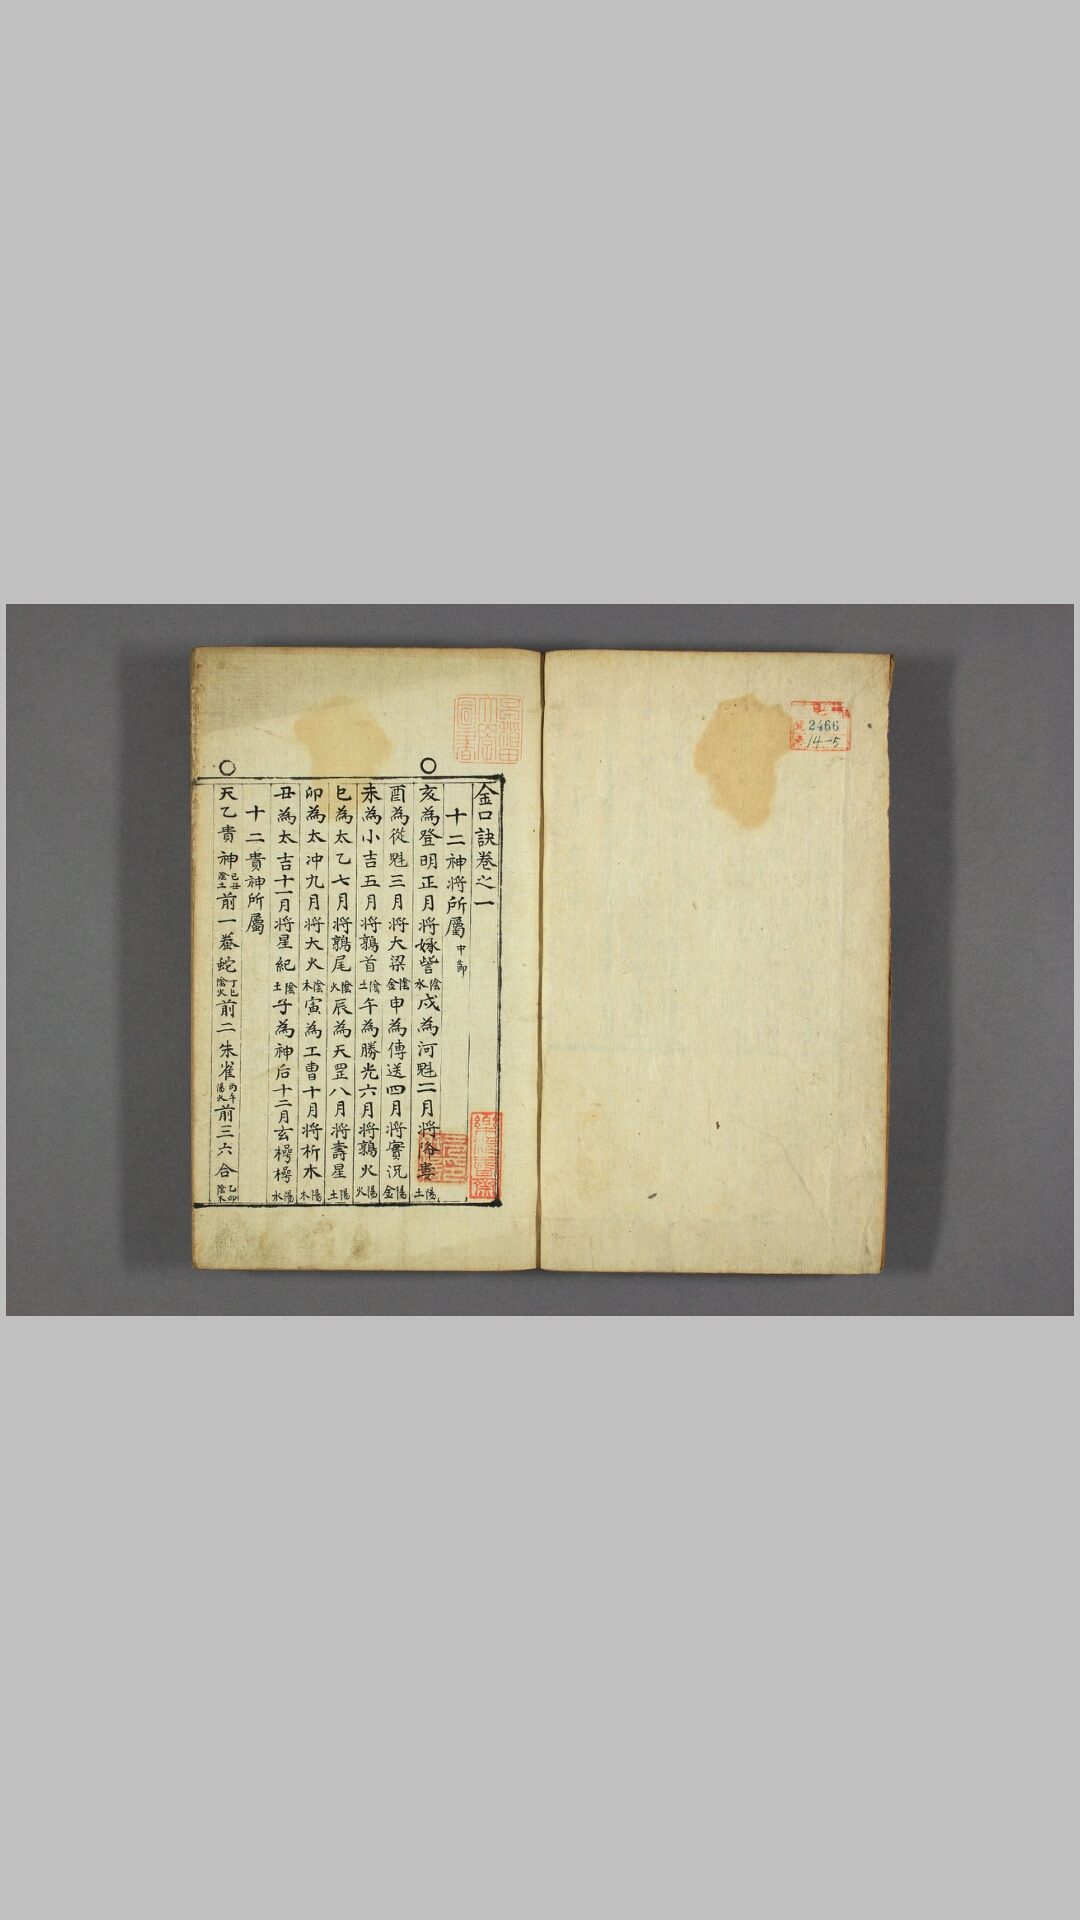 金口訣卷之一
十二神將所屬 中節
亥為登明正月將娵訾陰水戌為河魁二月將降婁陽土
酉為從魁三月將大梁陰金申為傳送四月將實沉陽金
未為小吉五月將鶉首陰土午為勝光六月將鶉火陽火
巳為太乙七月將鶉尾陰火辰為天罡八月將壽星陽土
卯為太冲九月將大火陰木寅為工曹十月將析木陽木
丑為太吉十一月將星紀陰土子為神后十二月玄枵枵陽水
十二貴神所屬
○天乙貴神己丑陰土前一螣蛇丁巳陰火前二朱雀丙午陽火前三六合乙卯陰木
2466
14-5